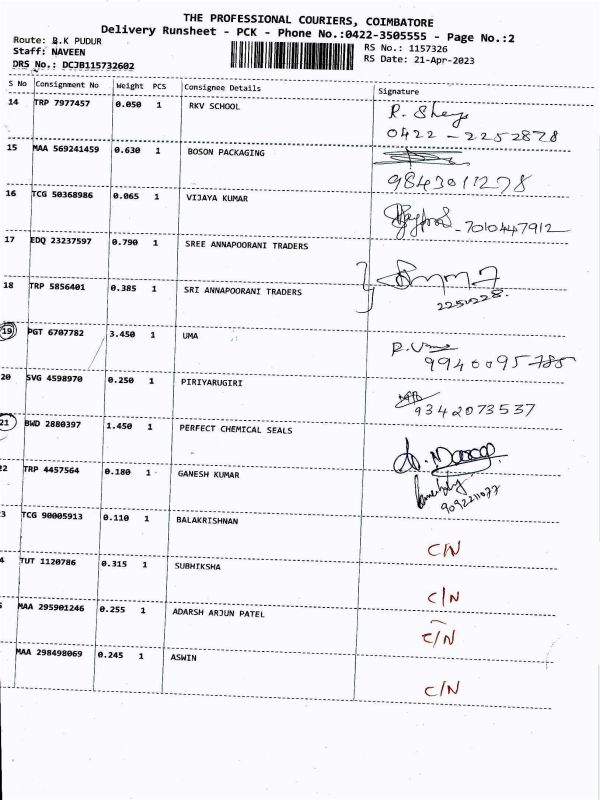 THE PROFESSIONAL COURIERS, COIMBATORE
Delivery Runsheet - PCK - Phone No.:0422-3505555 - Page No.:2
Route: B.K PUDUR
RS No.: 1157326
Staff: NAVEEN
RS Date: 21-Apr-2023
DRS No.: DCJB115732602
S No Consignment No Weight PCS Consignee Details Signature
14 TRP 7977457 0.050 1 RKV SCHOOL
0422 - 2252878
15 MAA 569241459 0.630 1 BOSON PACKAGING
9843011278
16 TCG 50368986 0.065 1 VIJAYA KUMAR
- 7010447912
17 EDQ 23237597 0.790 1 SREE ANNAPOORANI TRADERS
18 TRP 5856401 0.385 1 SRI ANNAPOORANI TRADERS
19 PGT 6707782 3.450 1 UMA
R. Uma
9940095788
20 SVG 4598970 0.250 1 PIRIYARUGIRI
9342073537
21 BWD 2880397 1.450 1 PERFECT CHEMICAL SEALS
22 TRP 4457564 0.180 1 GANESH KUMAR
9092211077
3 TCG 90005913 0.110 1 BALAKRISHNAN
C/N
4 TUT 1120786 0.315 1 SUBHIKSHA
C/N
5 MAA 295901246 0.255 1 ADARSH ARJUN PATEL
C/N
MAA 298498069 0.245 1 ASWIN
C/N